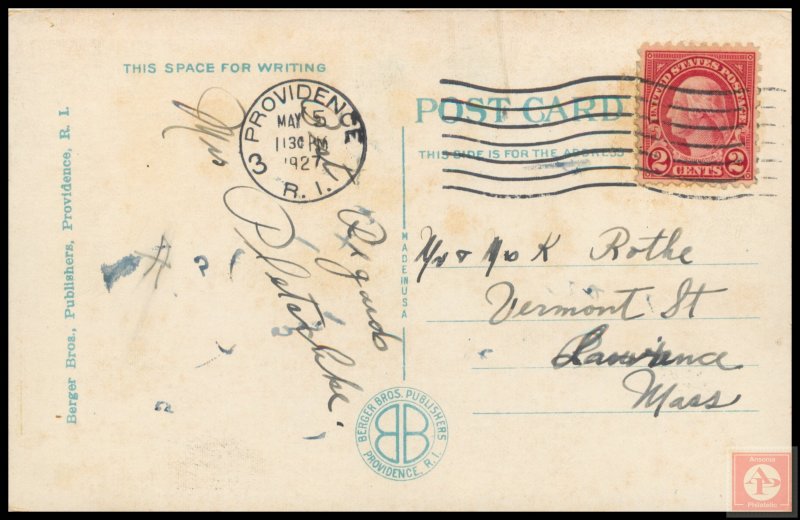 THIS SPACE FOR WRITING
Berger Bros., Publishers, Providence, R. I.
PROVIDENCE
MAY 5
1130 PM
1927
3 R. I.
Best Regards
Mrs
POST CARD
THIS SIDE IS FOR THE ADDRESS
UNITED STATES POSTAGE
2 CENTS 2
MADE IN USA
Mr & Mrs K Rothe
Vermont St
Lawrence
Mass
BERGER BROS. PUBLISHERS
BB
PROVIDENCE, R. I.
Ansonia
AP
Philatelic